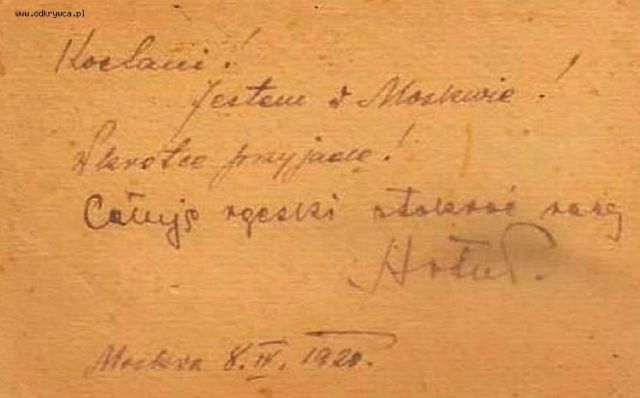 www.odkrywca.pl
Kochani!
Jestem w Moskwie!
Wkrótce przyjadę!
Całuję rączki stokroć razy
Moskwa 8.IV.1920.